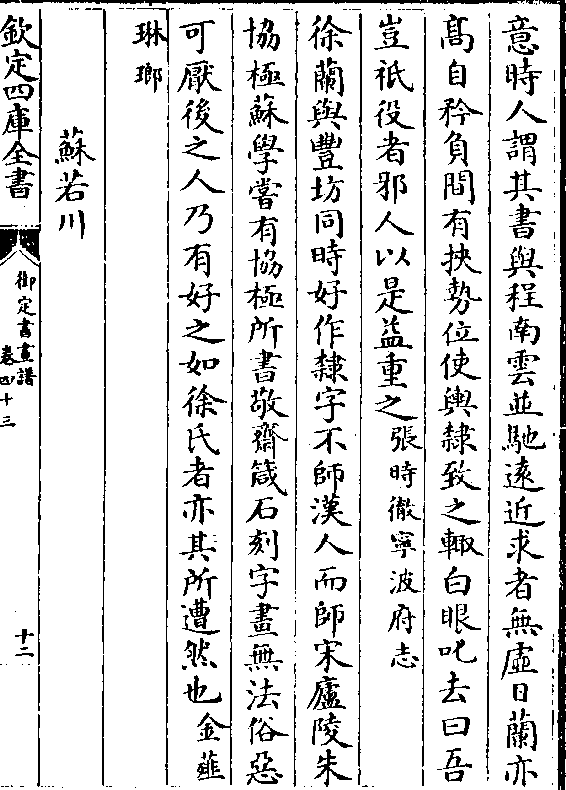 意時人謂其書與程南雲並馳逺近求者無虛日蘭亦
髙自矜負間有挾勢位使輿隸致之輙白眼叱去曰吾
豈祇役者邪人以是益重之張時徹寧波府志
徐蘭與豐坊同時好作隸字不師漢人而師宋廬陵朱
協極蘇學嘗有協極所書敬齋箴石刻字畫無法俗惡
可厭後之人乃有好之如徐氏者亦其所遭然也金薤
琳瑯
蘇若川
欽定四庫全書
御定書畫譜
卷四十三
十二